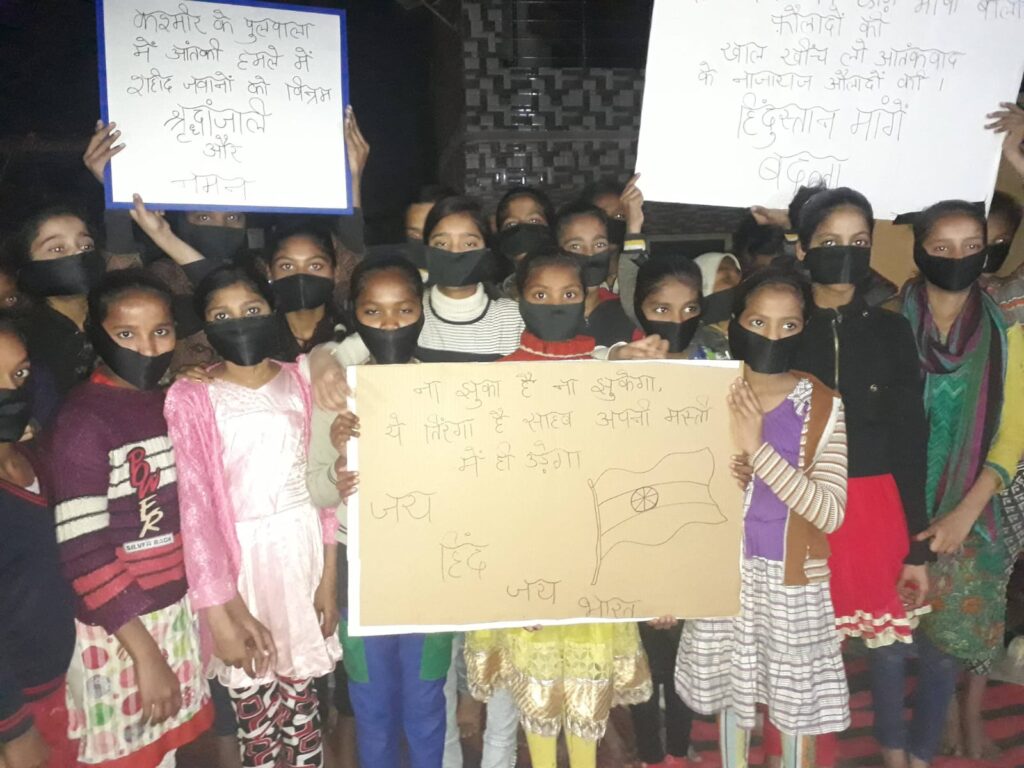 कश्मीर के पुलवामा
में आंतकी हमले में
शहीद जवानों को
श्रृद्धांजलि
और
नमन
फ़ौलादों की
खाल खींच लो आतंकवाद
के नाजायज औलादों की।
हिंदुस्तान मांगें
बदला
ना झुका है ना झुकेगा,
ये तिरंगा है साहब अपनी मस्ती
में ही उड़ेगा
जय
हिंद
जय भारत
BWER